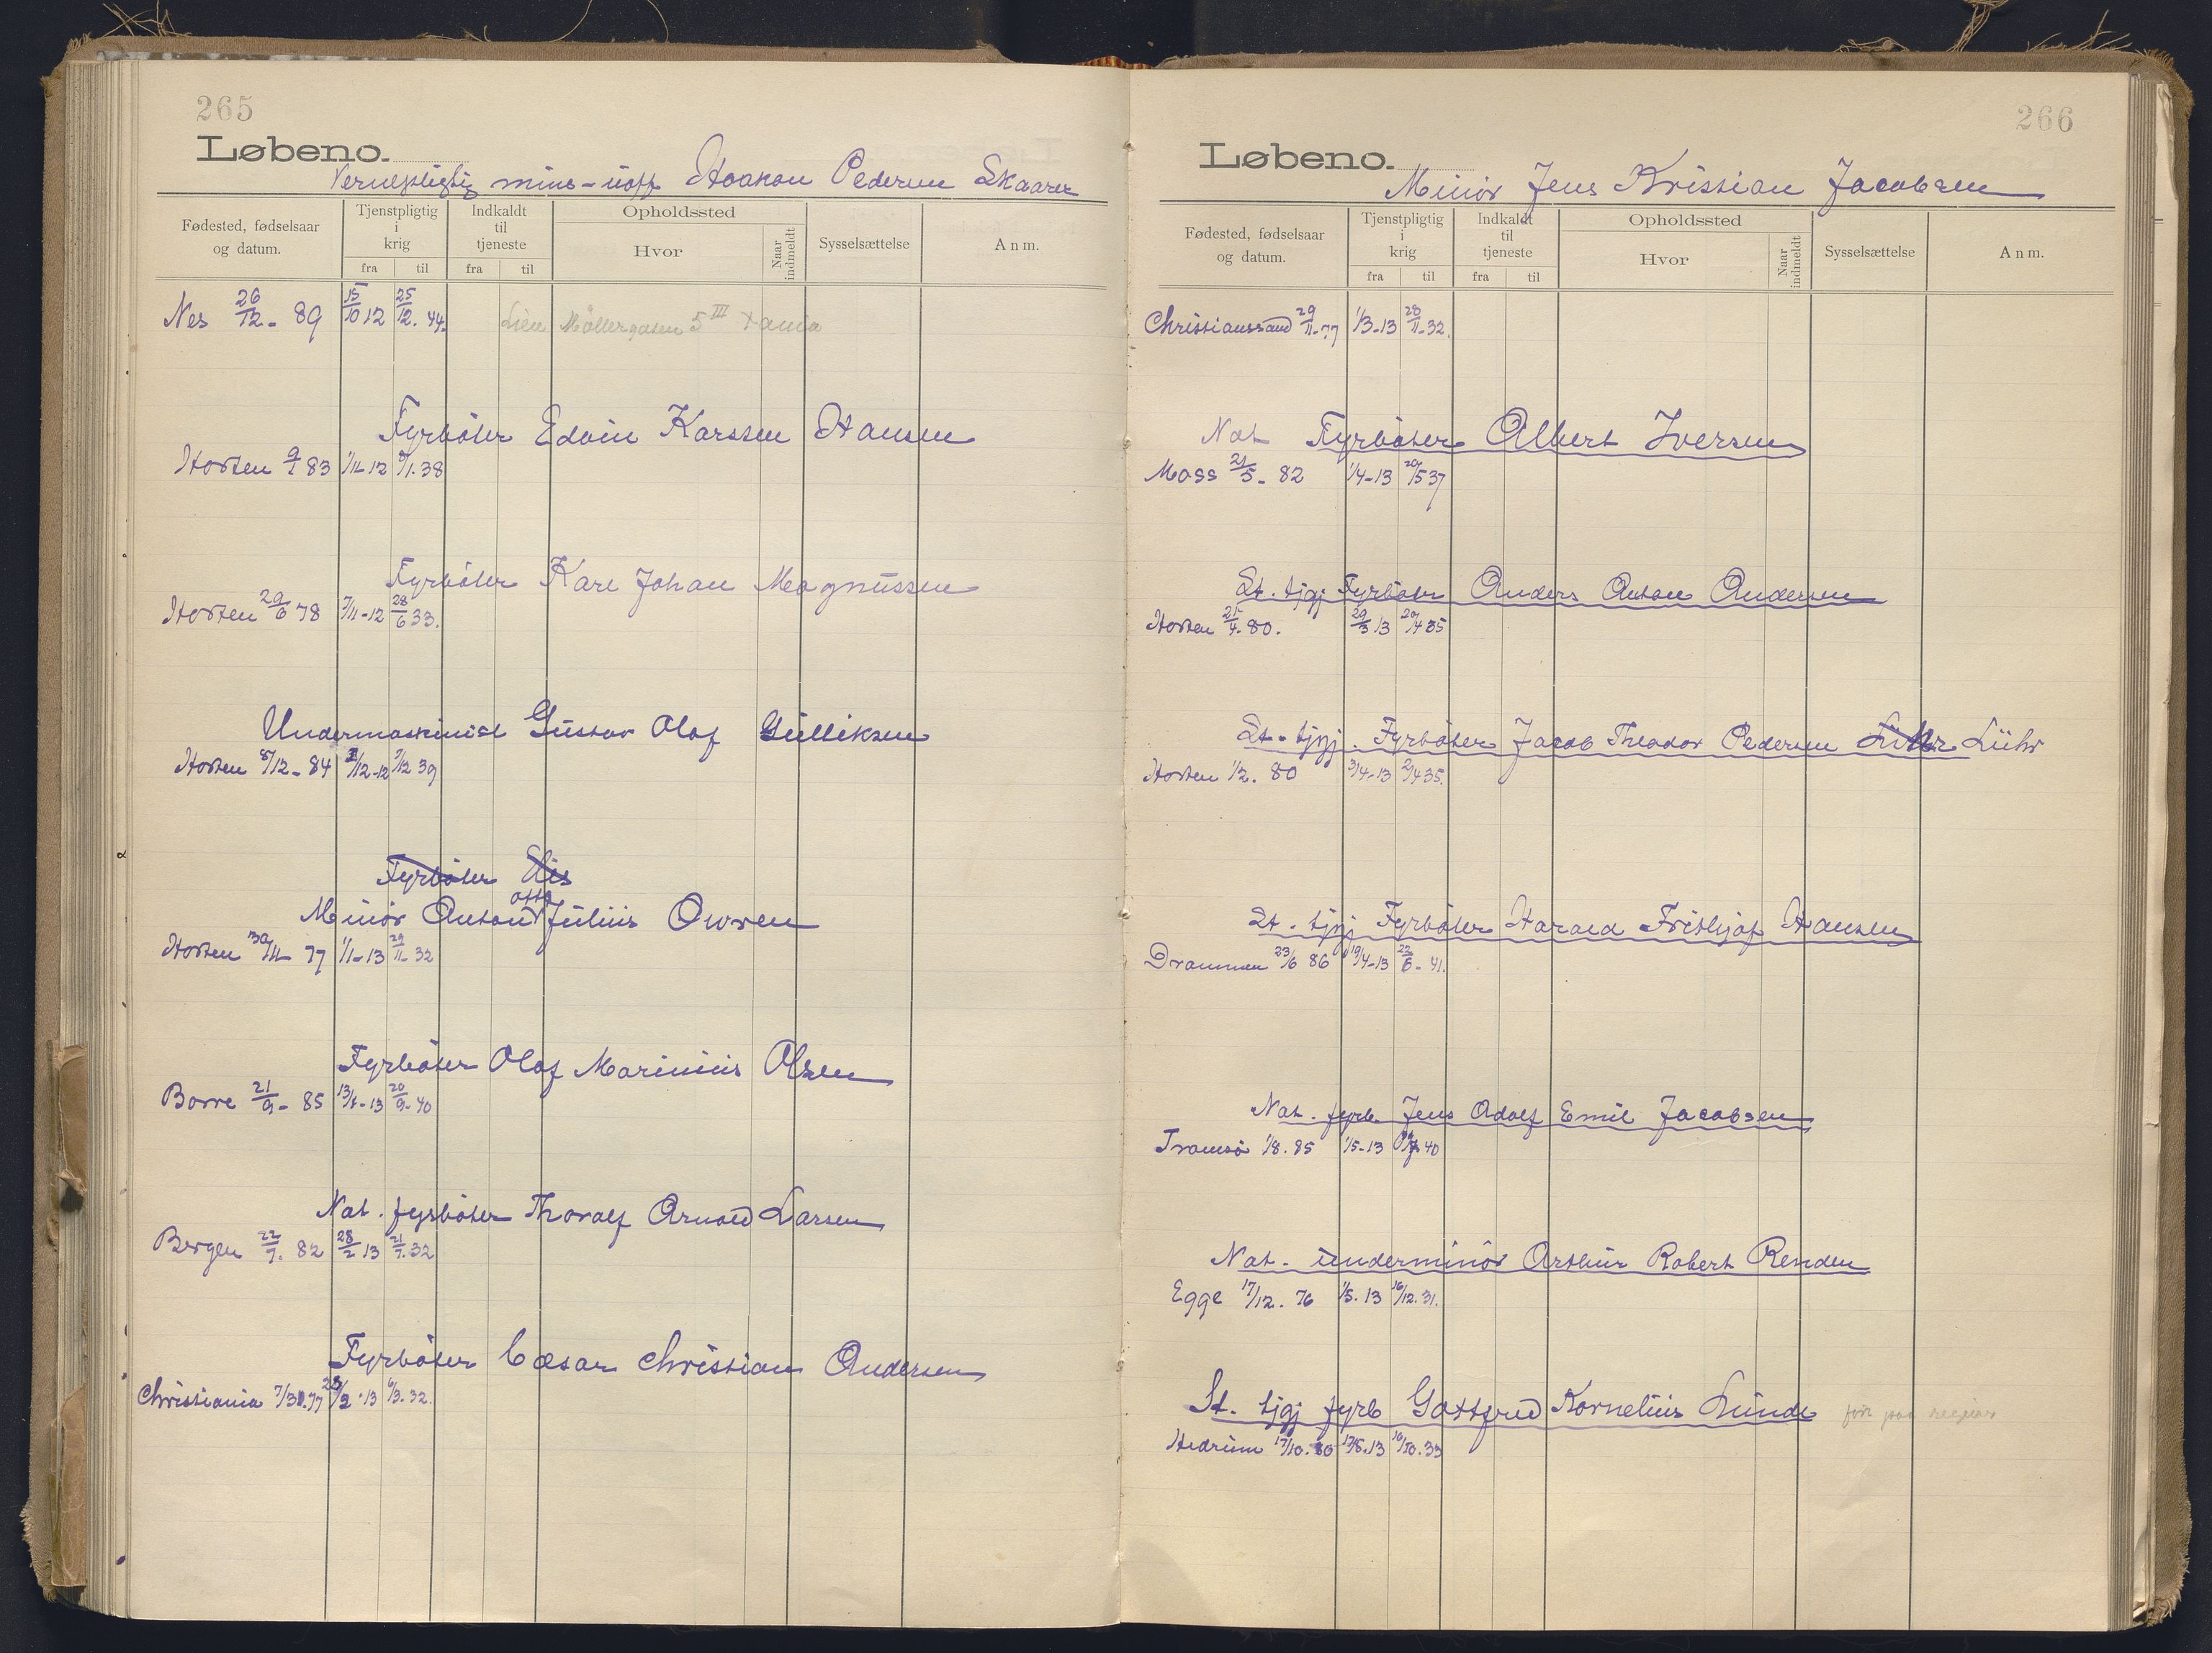 265
Løbeno.
Vernepligtig mine-uoff Haakon Pedersen Skaarer
Fødested, fødselsaar og datum.
Tjenstpligtig i krig
fra til
Indkaldt til tjeneste
fra til
Opholdssted
Hvor
Naar indmeldt
Sysselsættelse
Anm.
Nes 26/12 - 89 15/10 12 25/12. 44. Møllergaten 5 III Xania
Fyrbøter Edvin Karssen Hansen
Horten 9/1 83 1/11 12 8/1. 38
Fyrbøter Karl Johan Magnussen
Horten 29/6 78 7/11-12 28/6 33.
Undermaskinist Gustav Olaf Gulliksen
Horten 8/12 - 84 1/12-12 7/12 39
Fyrbøter Elis
otto
Minør Anton Julius Owren
Horten 30/11 77 1/1-13 29/11 32
Fyrbøter Olaf Marinius Olsen
Borre 21/9 - 85 13/1-13 20/9-40
Nat. fyrbøter Thoralf Arnold Larsen
Bergen 22/7. 82 28/2 13 21/7. 32
Fyrbøter Cæsar Christian Andersen
Christiania 7/3.77 28/2.13 6/3.32.
266
Løbeno.
Minør Jens Kristian Jacobsen
Fødested, fødselsaar og datum.
Tjenstpligtig i krig
fra til
Indkaldt til tjeneste
fra til
Opholdssted
Hvor
Naar indmeldt
Sysselsættelse
Anm.
Christianssand 29/11-77 1/3-13 28/11-32.
Nat Fyrbøter Albert Iversen
Moss 21/5 - 82 1/4-13 20/5 37
St. tjgj Fyrbøter Anders Anton Andersen
Horten 21/4. 80. 29/3 13 20/4 35
St. tjgj. Fyrbøter Jacob Theodor Pedersen Lühr
Horten 1/2. 80 3/4-13 2/4 35.
St. tjgj Fyrbøter Harald Frithjof Hansen
Drammen 23/6 86 19/4-13 22/6-41.
Nat. fyrb. Jens Adolf Emil Jacobsen
Tromsø 1/8. 85 1/5-13 40
Nat. underminør Arthur Robert Renden
Egge 17/12. 76 1/5. 13 16/12. 31.
St. tjgj fyrb Gottfred Kornelius Lunde
Hedrum 17/10. 80 17/5.13 16/10.35